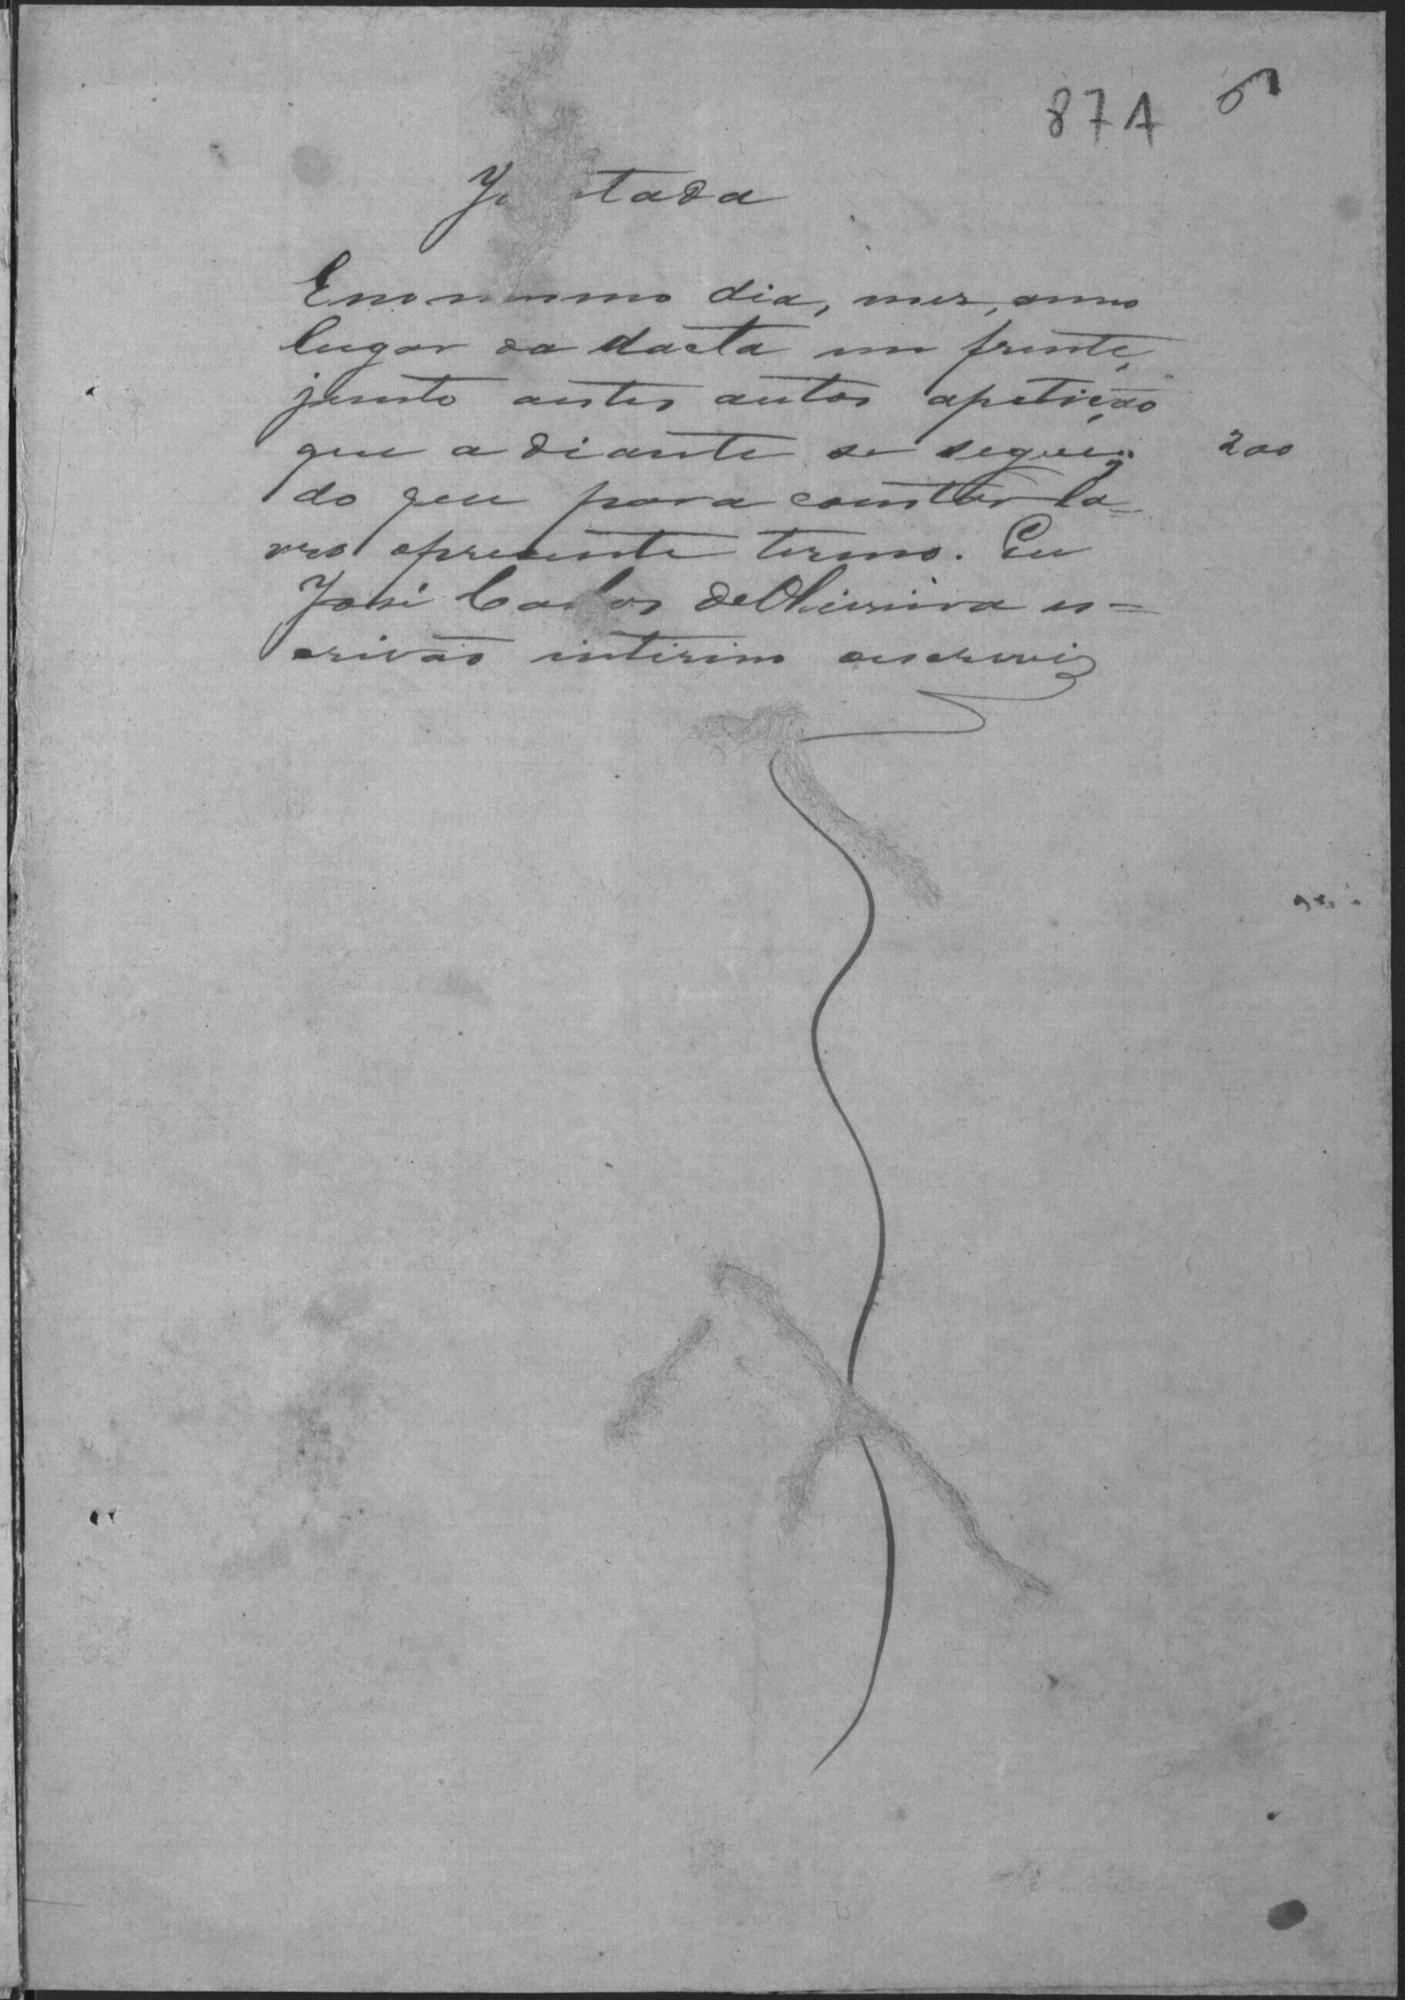 87A
Juntada
Em o mesmo dia, mes, anno
lugar da dacta em frente,
junto aestes autos apetição
que adiante se segue;
200
do que para constar la=
vro opresente termo. Eu
José Carlos de Oliveira es=
crivão interino oescrevi